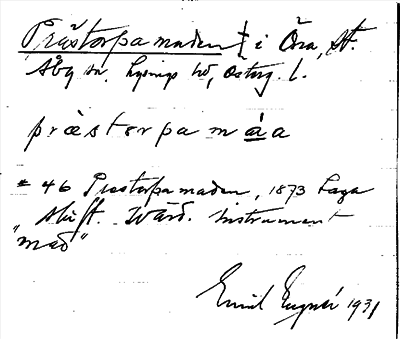 Prästorpamaden i Öra, St.
Åby sn, Lysings hd, Österg. l.
præstorpamáa
# 46 Prestorpamaden, 1873 Laga
skift. Värd. instrument
"mad"
Emil 1931